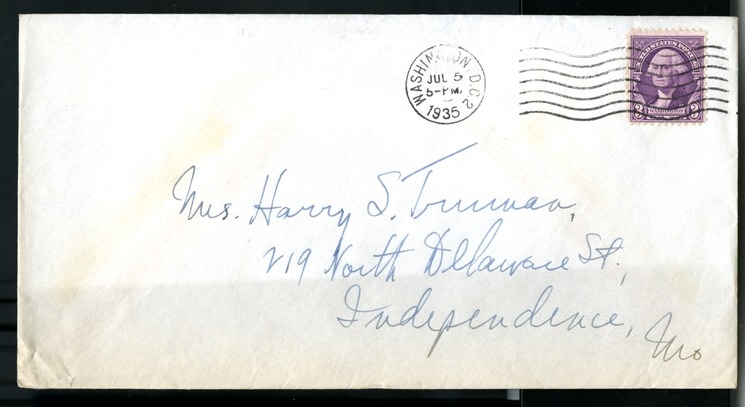 WASHINGTON, D.C. 2
JUL 5
5-PM
1935
UNITED STATES POSTAGE
WASHINGTON
3 3
Mrs. Harry S. Truman,
219 North Delaware St.,
Independence,
Mo